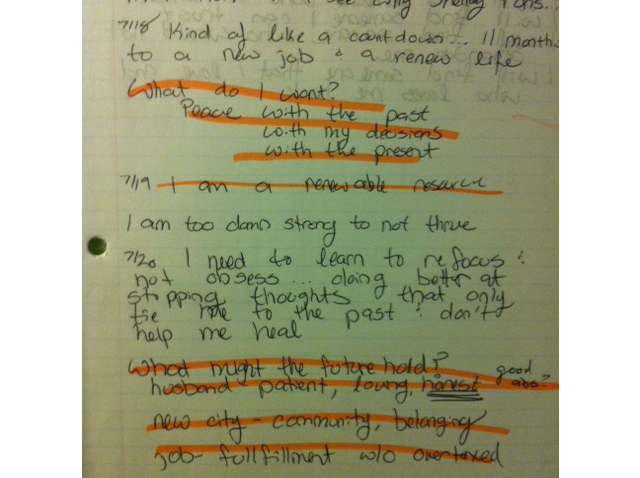 7/18 Kind of like a countdown... 11 months
to a new job & a renew life
What do I want?
Peace with the past
with my decisions
with the present
7/19 I am a renewable resource
I am too damn strong to not thrive
7/20 I need to learn to refocus &
not obsess... doing better at
stopping thoughts that only
tie me to the past & don't
help me heal
What might the future hold?
husband patient, loving, honest good abs?
new city - community, belonging
job - fullfillment w/o overtaxed